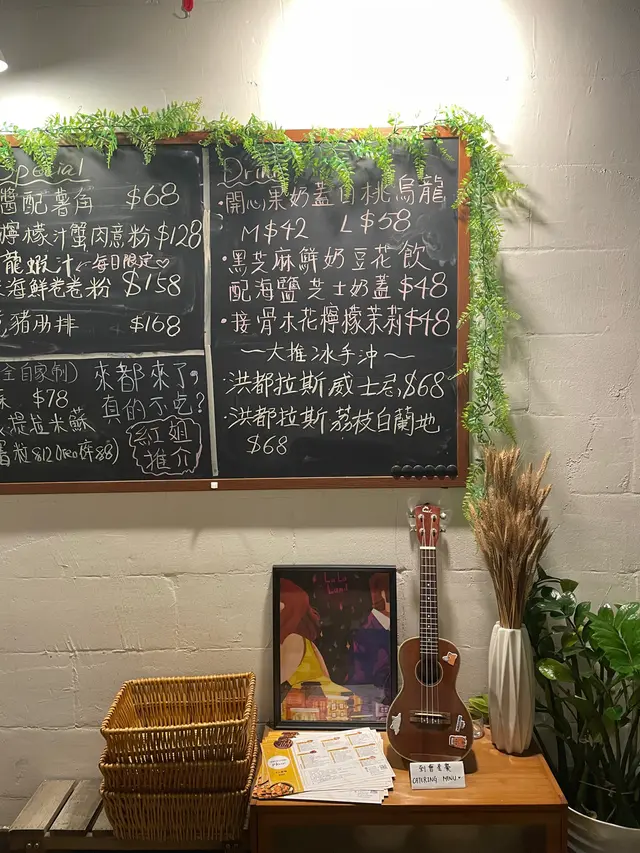 Special
醬配薯角 $68
檸檬汁蟹肉意粉 $128
龍蝦汁 ← 每日限定♡
海鮮卷卷粉 $158
豬肋排 $168
全自家制)
$78
提拉米蘇
來都來了,
真的不吃?
紅姐
推介
Drink
・開心果奶蓋白桃烏龍
M$42 L$58
・黑芝麻鮮奶豆花飲
配海鹽芝士奶蓋 $48
・接骨木花檸檬茉莉$48
~大推冰手沖~
・洪都拉斯威士忌,$68
・洪都拉斯荔枝白蘭地
$68
La La
Land
到會餐單
CATERING MENU